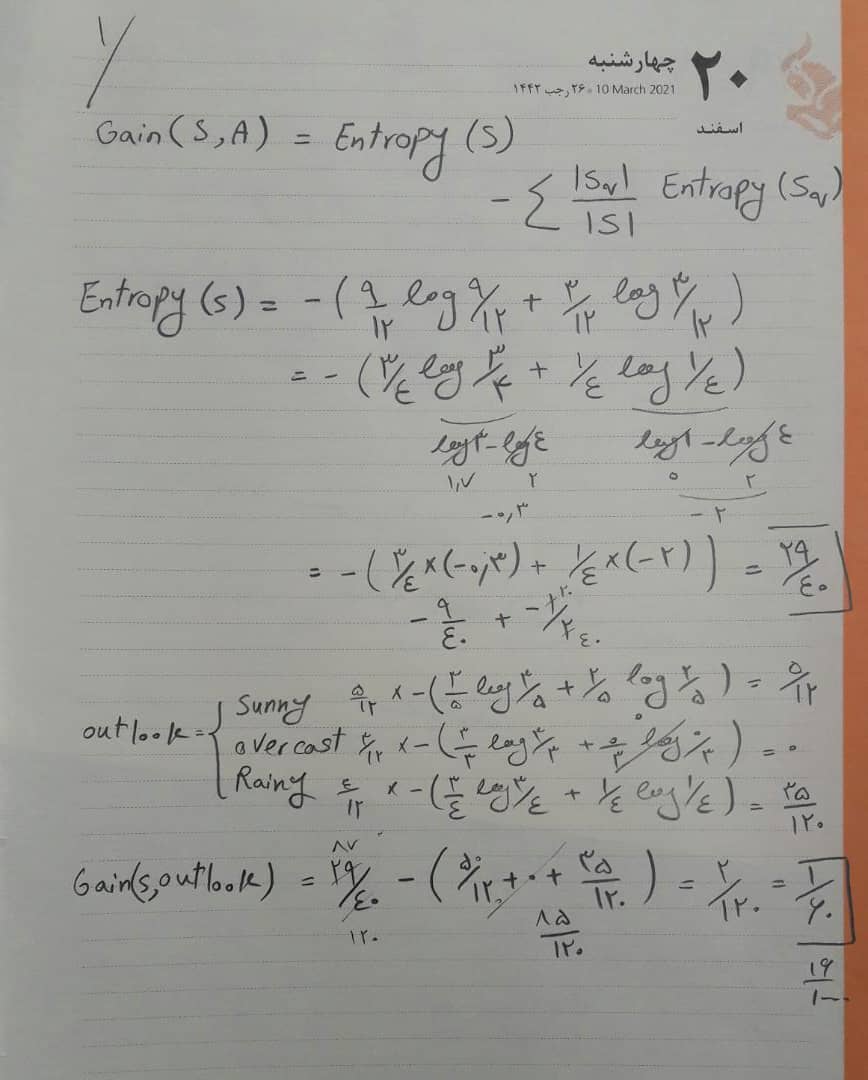 ۱/
۲۰ چهارشنبه
10 March 2021 ۲۶ رجب ۱۴۴۲
اسفند
Gain(S,A) = Entropy(S)
- Σ |Sv|/|S| Entropy(Sv)
Entropy(s) = -(۹/۱۲ log ۹/۱۲ + ۳/۱۲ log ۳/۱۲)
= -(۳/٤ log ۳/۴ + ۱/٤ log ۱/٤)
log۳-log٤ log۱-log٤
۱,۷ ۲ ۰ ۲
-۰,۳ -۲
= -(۳/٤×(-۰,۳) + ۱/٤×(-۲)) = ۲۹/٤۰
-۹/٤۰ + -۱/۲ ۲۰ ٤۰
outlook = { Sunny ۵/۱۲ × -(۳/۵ log ۳/۵ + ۲/۵ log ۲/۵) = ۵/۱۲
overcast ۳/۱۲ × -(۳/۳ log ۳/۳ + ۰/۳ log ۰/۳) = ۰
Rainy ٤/۱۲ × -(۳/٤ log ۳/٤ + ۱/٤ log ۱/٤) = ۳۵/۱۲۰
۸۷
Gain(s,outlook) = ۲۹/٤۰ - (۵۰/۱۲۰ + ۰ + ۳۵/۱۲۰) = ۲/۱۲۰ = ۱/۶۰
۱۲۰ ۸۵/۱۲۰
۱۶/۱۰۰۰